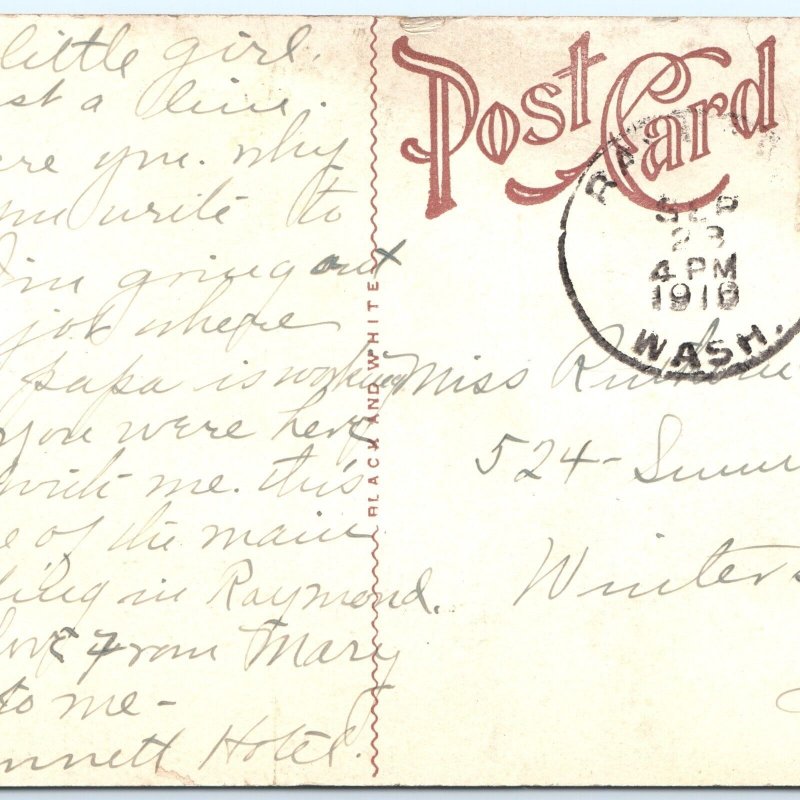 little girl.
st a line.
re you. why
write to
I'm going out
job where
papa is working
you were here
with me. this
e of the main
ding in Raymond.
love from Mary
to me -
nnett Hotel.
BLACK AND WHITE
Post Card
RA
SEP
23
4 PM
1910
WASH.
Miss
524 -
Winters